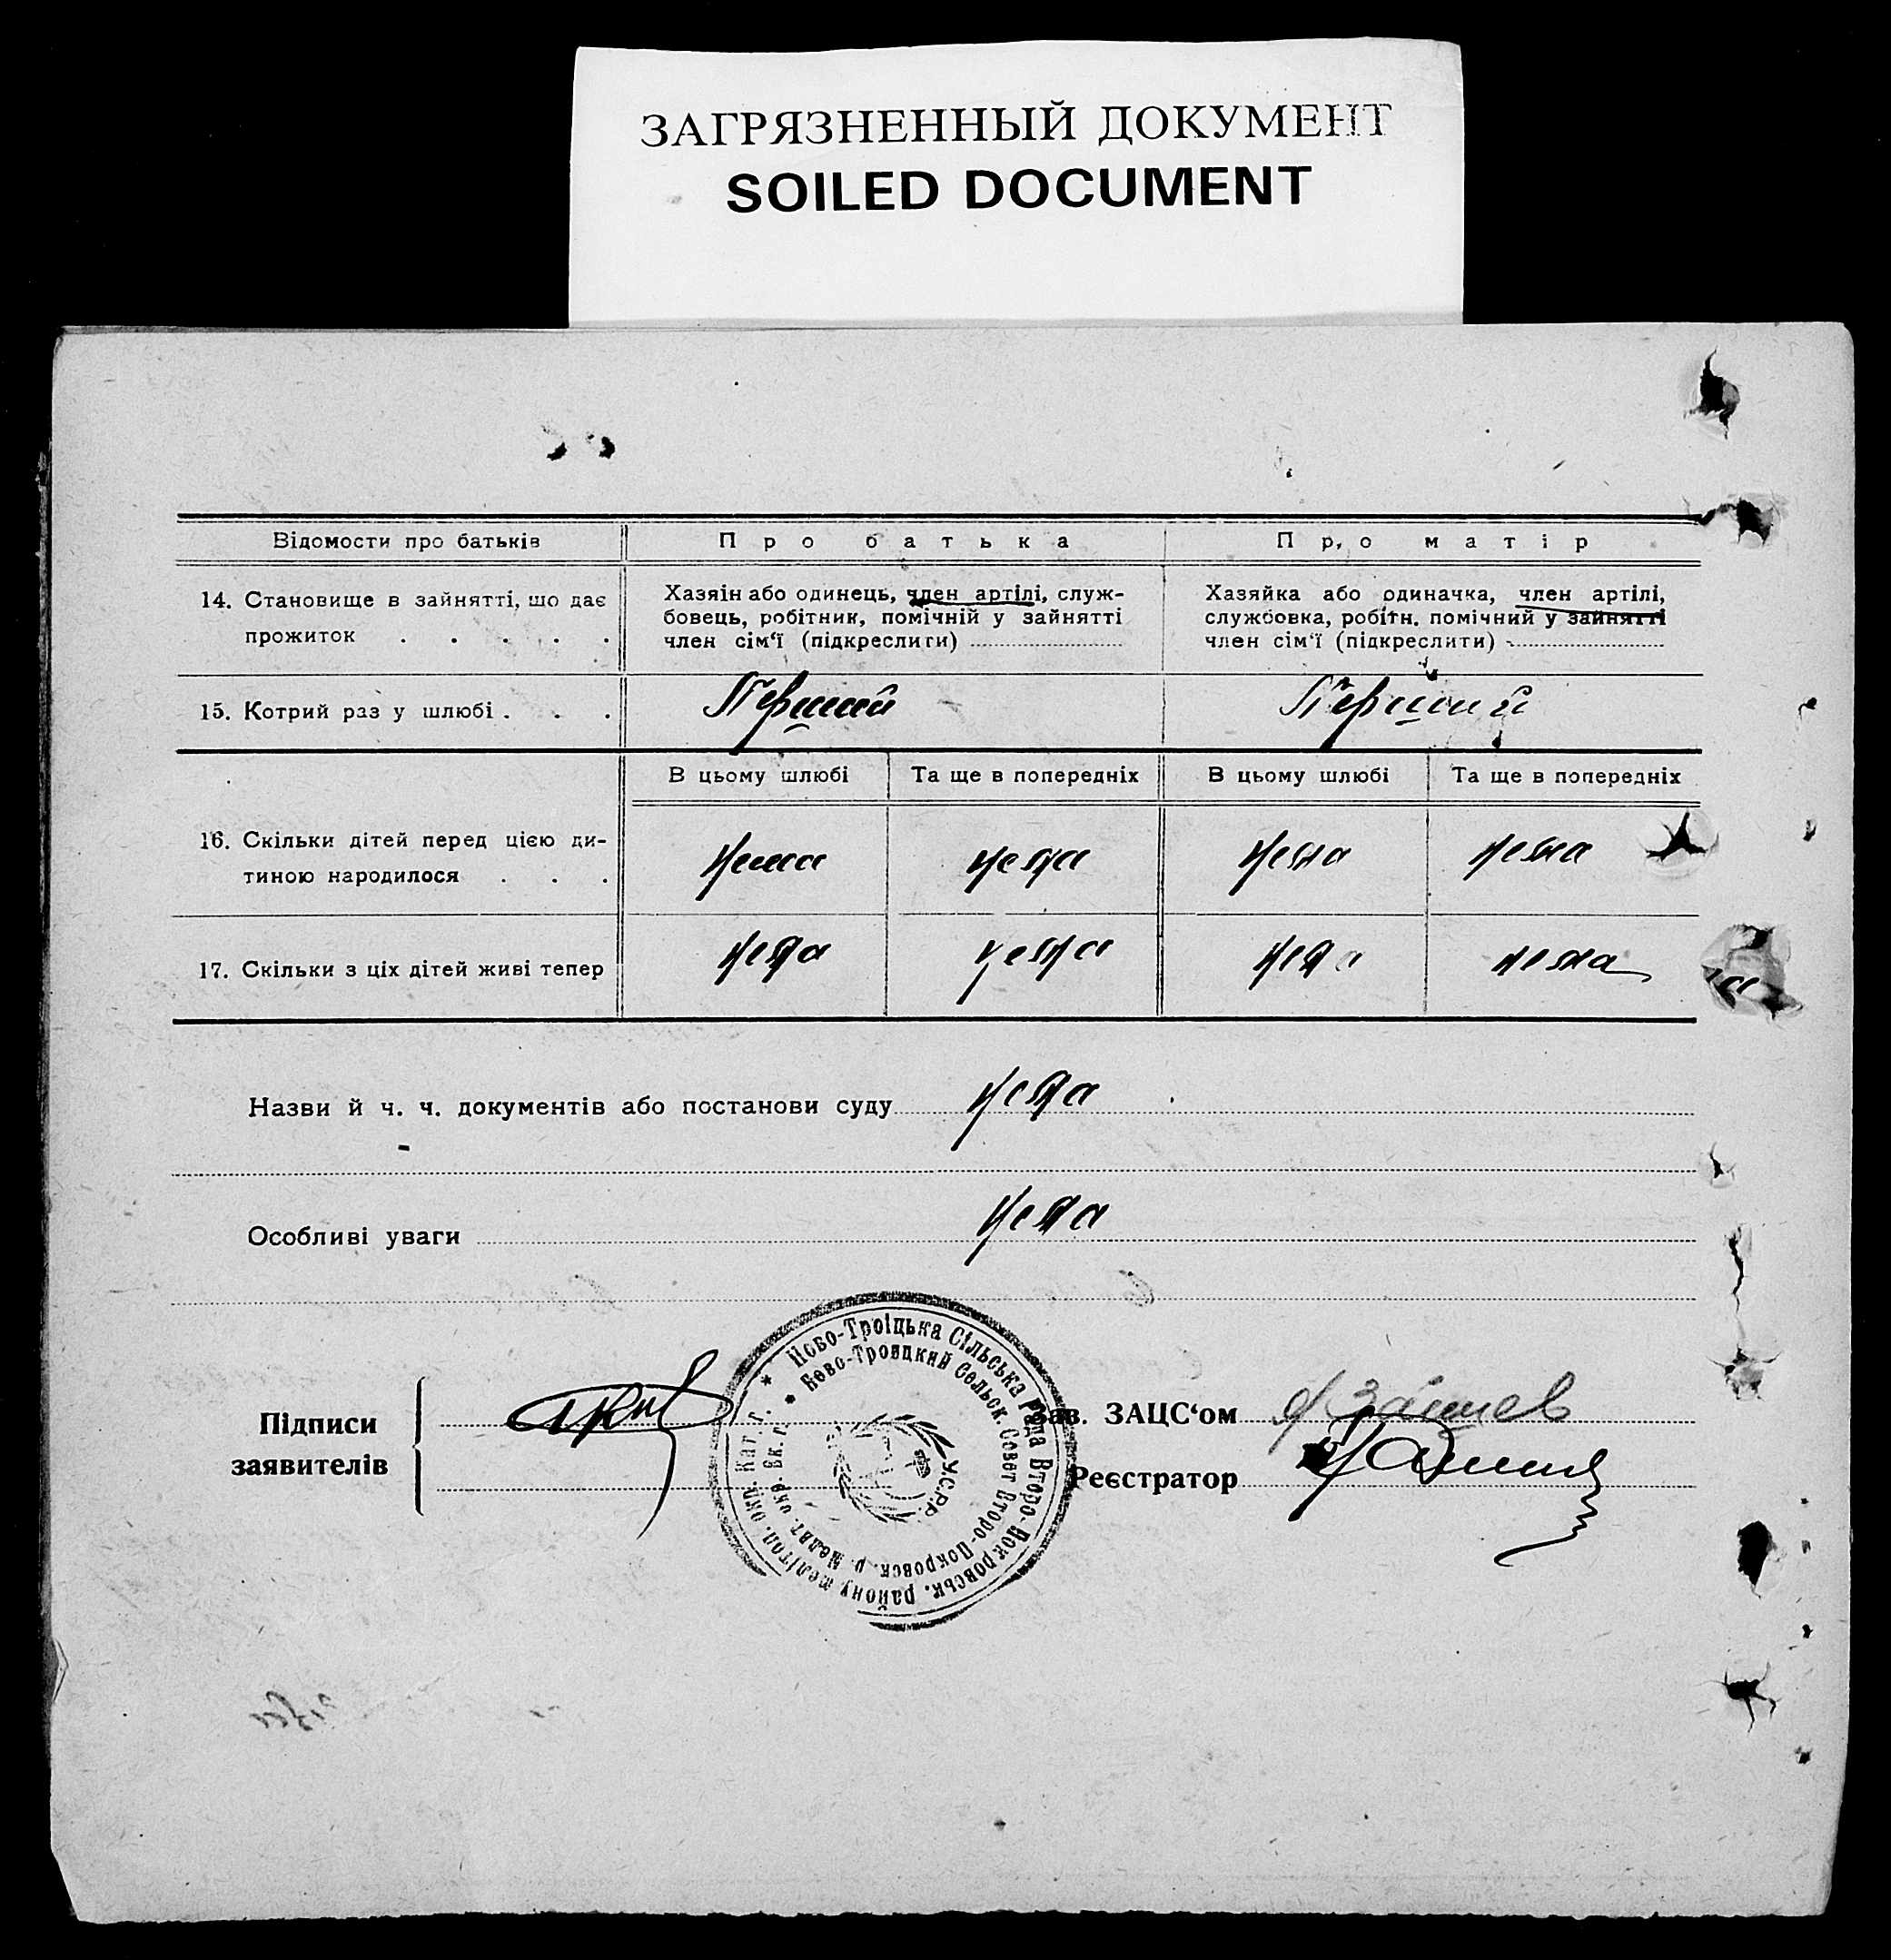 ЗАГРЯЗНЕННЫЙ ДОКУМЕНТ
SOILED DOCUMENT
Відомости про батьків
Про батька
Про матір
14. Становище в зайнятті, що дає
прожиток . . . . .
Хазяін або одинець, член артілі, служ-
бовець, робітник, помічній у зайнятті
член сім‘ї (підкреслити)
Хазяйка або одиначка, член артілі,
службовка, робітн. помічний у зайнятті
член сім‘ї (підкреслити)
15. Котрий раз у шлюбі . . .
Перший
Перший
В цьому шлюбі
Та ще в попередніх
В цьому шлюбі
Та ще в попередніх
16. Скільки дітей перед цією ди-
тиною народилося . . .
нема
нема
нема
нема
17. Скільки з ціх дітей живі тепер
нема
нема
нема
нема
Назви й ч. ч. документів або постанови суду нема
Особливі уваги нема
Підписи
заявителів
Зав. ЗАЦС‘ом
Реєстратор
* Ново-Троіцька Сільська Рада Второ-Покровськ. району, мелітоп. окр. Кат. г.
* Ново-Троицкий Сельск. Совет Второ-Покровск. р. Мелит. окр. Ек. г.
У.С.Р.Р.